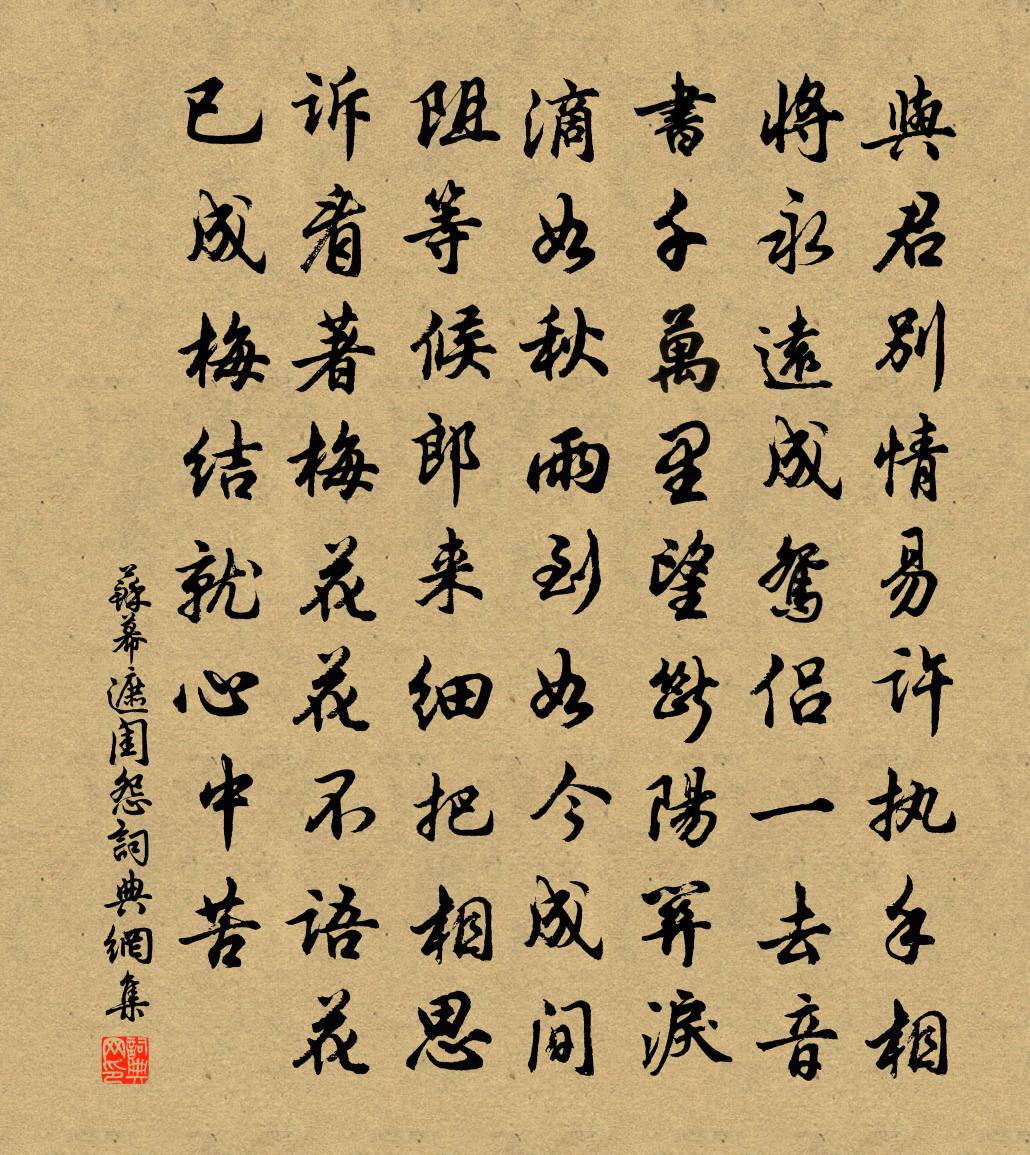 與君別情易許执手相
將永遠成鴛侣一去音
書千萬里望斷陽關淚
滴如秋雨到如今成間
阻等候郎来细把相思
诉看著梅花花不语花
已成梅结就心中苦
蘇幕遮閨怨詞典網集
詞典网印